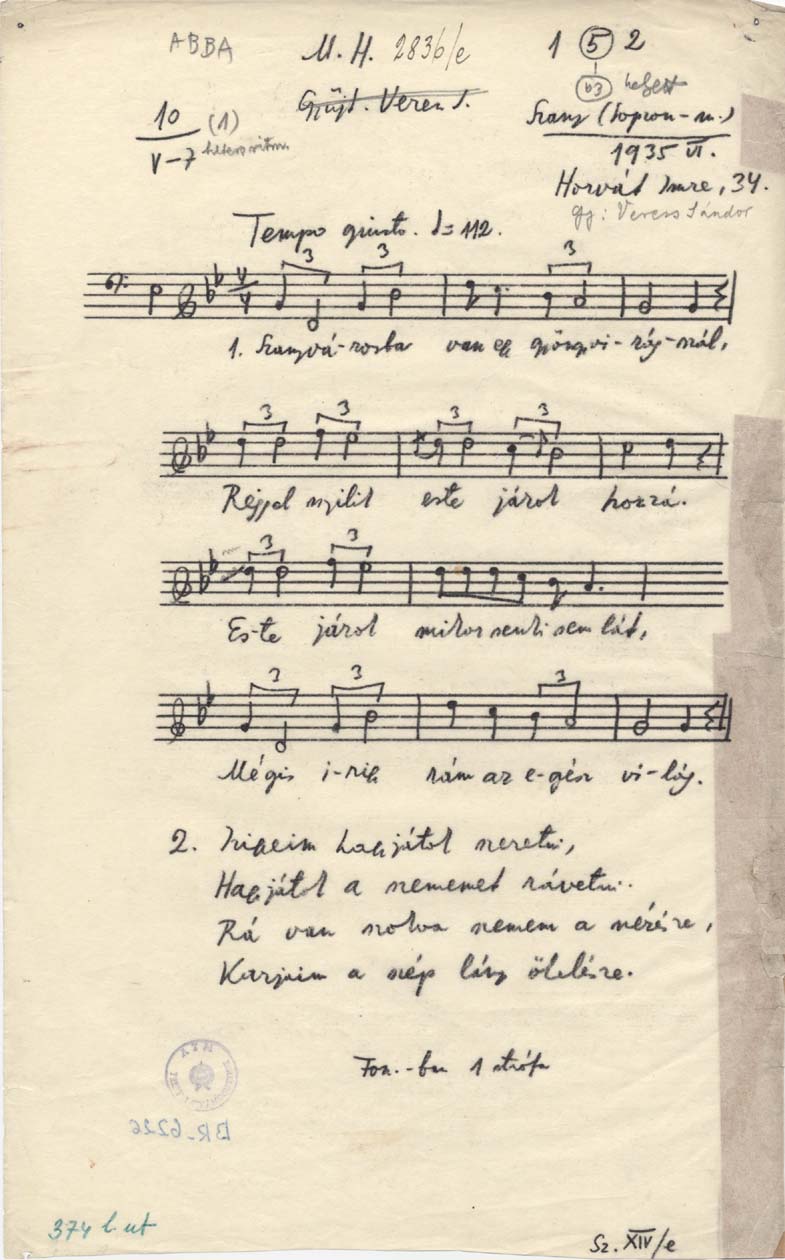 ABBA
M. H. 2836/e
1 5 2
b3 helyett
Gyűjt. Veress S.
10 (1)
V-7 heteroritm.
Szany (Sopron-m.)
1935 VI.
Horvát Imre, 34.
gy: Veress Sándor
Tempo giusto. = 112.
3 3 3
1. Szanyvá-rosba van egy gyöngyvi-rág-szál,
3 3 3 3
Réjjel nyilik este járok hozzá.
3 3
Es-te járok mikor senki sem lát,
3 3 3
Mégis i-rigy rám az e-gész vi-lág.
2. Irigyeim hagyjátok szeretni,
Hagyjátok a szememet rávetni.
Rá van szokva szemem a nézésre,
Karjaim a szép lány ölelésre.
Fon.-ban 1 strófa
BR-6226
374 l. ut
Sz. XIV/e